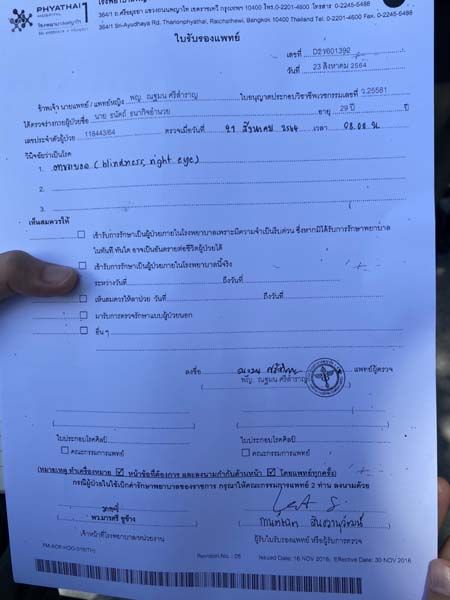 PHYATHAI 1
HOSPITAL
โรงพยาบาลพญาไท 1
364/1 ถ.ศรีอยุธยา แขวงถนนพญาไท เขตราชเทวี กรุงเทพฯ 10400 โทร.0-2201-4600 โทรสาร 0-2245-5488
364/1 Sri-Ayudhaya Rd, Thanonphyathai, Rajchathewi, Bangkok 10400 Thailand Tel. 0-2201-4600 Fax. 0-2245-5488
ใบรับรองแพทย์
เลขที่
วันที่ 23 สิงหาคม 2564
ข้าพเจ้า นายแพทย์ / แพทย์หญิง พญ. ณฐมน ศรีสำราญ ใบอนุญาตประกอบวิชาชีพเวชกรรมเลขที่ ว.25581
ได้ตรวจร่างกายผู้ป่วยชื่อ นาย ธนัตถ์ ธนากิจอำนวย อายุ 29 ปี ปี
เลขประจำตัวผู้ป่วย 118443/64 ตรวจเมื่อวันที่ 21 สิงหาคม 2564 เวลา
วินิจฉัยว่าเป็นโรค
1. ตาขวาบอด (blindness, right eye)
2.
3.
เห็นสมควรให้
เข้ารับการรักษาเป็นผู้ป่วยภายในโรงพยาบาลเพราะมีความจำเป็นรีบด่วน ซึ่งหากมิได้รับการรักษาพยาบาล
ในทันที ทันใด อาจเป็นอันตรายต่อชีวิตผู้ป่วยได้
เข้ารับการรักษาเป็นผู้ป่วยภายในโรงพยาบาลนี้จริง
ระหว่างวันที่ ถึงวันที่
เห็นสมควรให้ลาป่วย วันที่ ถึงวันที่
มารับการตรวจรักษาแบบผู้ป่วยนอก
อื่น ๆ
ลงชื่อ ณฐมน ศรีสำราญ แพทย์ผู้ตรวจ
( พญ. ณฐมน ศรีสำราญ )
ใบประกอบโรคศิลป์ ใบประกอบโรคศิลป์
คณะกรรมการแพทย์ คณะกรรมการแพทย์
(หมายเหตุ ทำเครื่องหมาย ☑ หน้าข้อที่ต้องการ และลงนามกำกับด้านหน้า ☑ โดยแพทย์ทุกครั้ง)
กรณีผู้ป่วยในใช้เบิกค่ารักษาพยาบาลของราชการ กรุณาให้คณะกรรมการแพทย์ 2 ท่าน ลงนามด้วย
เจ้าหน้าที่โรงพยาบาล/หน่วยงาน ผู้รับใบรับรองแพทย์ หรือผู้รับการตรวจ
Revision No. : 05 Issued Date: 16 NOV 2016, Effective Date: 30 NOV 2016